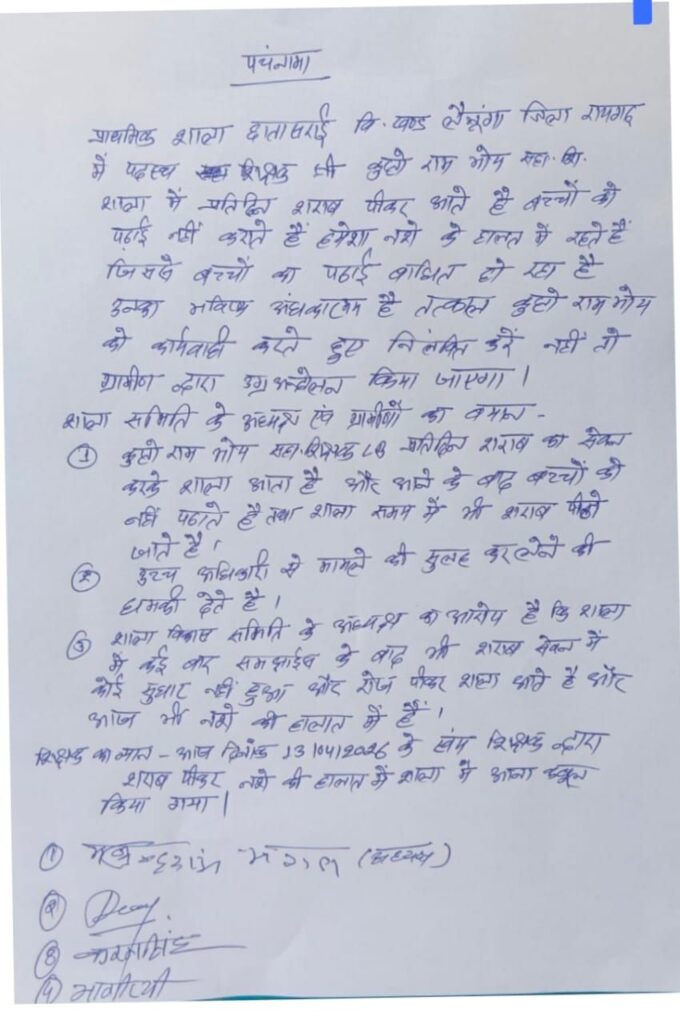 पचंनामा
प्राथमिक शाला छातासराई वि. खण्ड लैलूंगा जिला रायगढ़
में पदस्थ शिक्षक श्री राम भोय सहा. शि.
शाला में प्रतिदिन शराब पीकर आते है बच्चों को
पढ़ाई नहीं कराते हैं हमेशा नशे के हालत में रहते हैं
जिससे बच्चों का पढाई बाधित हो रहा है
उनका भविष्य अंधकारमय है तत्काल राम भोय
को कार्यवाही करते हुए निलंबित करें नहीं तो
ग्रामीण द्वारा उग्र आन्दोलन किया जाएगा।
शाला समिति के अध्यक्ष एवं ग्रामीणों का बयान -
① राम भोय सहा. शिक्षक LB प्रतिदिन शराब का सेवन
करके शाला आता है और आने के बाद बच्चों को
नहीं पढाते है तथा शाला समय में भी शराब पीने
जाते है।
② उच्च अधिकारी से मामले को सुलह कर लेने की
धमकी देते है।
③ शाला विकास समिति के अध्यक्ष का आरोप है कि शाला
में कई बार समझाईस के बाद भी शराब सेवन में
कोई सुधार नहीं हुआ और रोज पीकर शाला आते है और
आज भी नशे की हालात में हैं।
शिक्षक का बयान - आज दिनांक 13/04/2026 के स्वंय शिक्षक द्वारा
शराब पीकर नशे की हालात में शाला में आना कबूल
किया गया।
① (अध्यक्ष)
②
③ करमसिंह
④